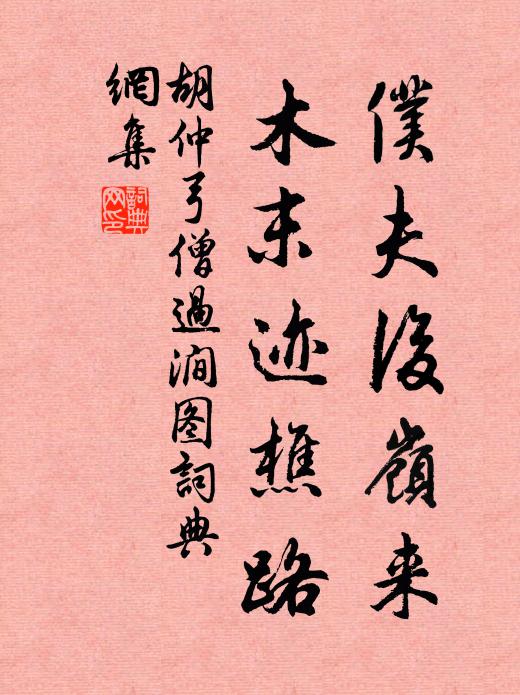 僕夫後嶺来
木末迹樵路
胡仲弓僧過澗图詞典
網集
詞典网印